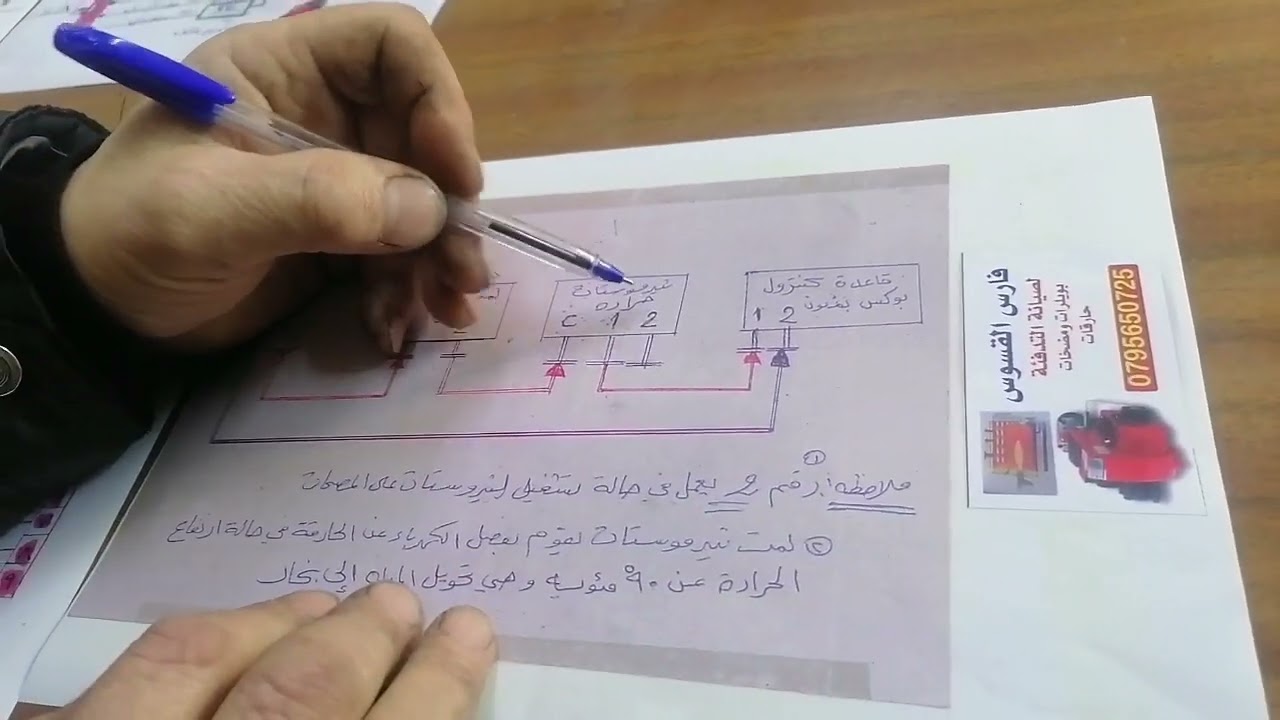 1
قاعدة كنترول
بوكس بفنون
1 2
ثيرموستات
حرارة
C 1 2
ملاحظة: ① رقم 2 يعمل في حالة تشغيل ثيروستات على المضخات
② لمت ثيرموستات يقوم بفصل الكهرباء عن الحارقة في حالة ارتفاع
الحرارة عن ٩٠ مئوية وهي تحويل المياه إلى بخار
فارس القسوس
لصيانة التدفئة
بويلرات ومضخات
حارقات
0795650725